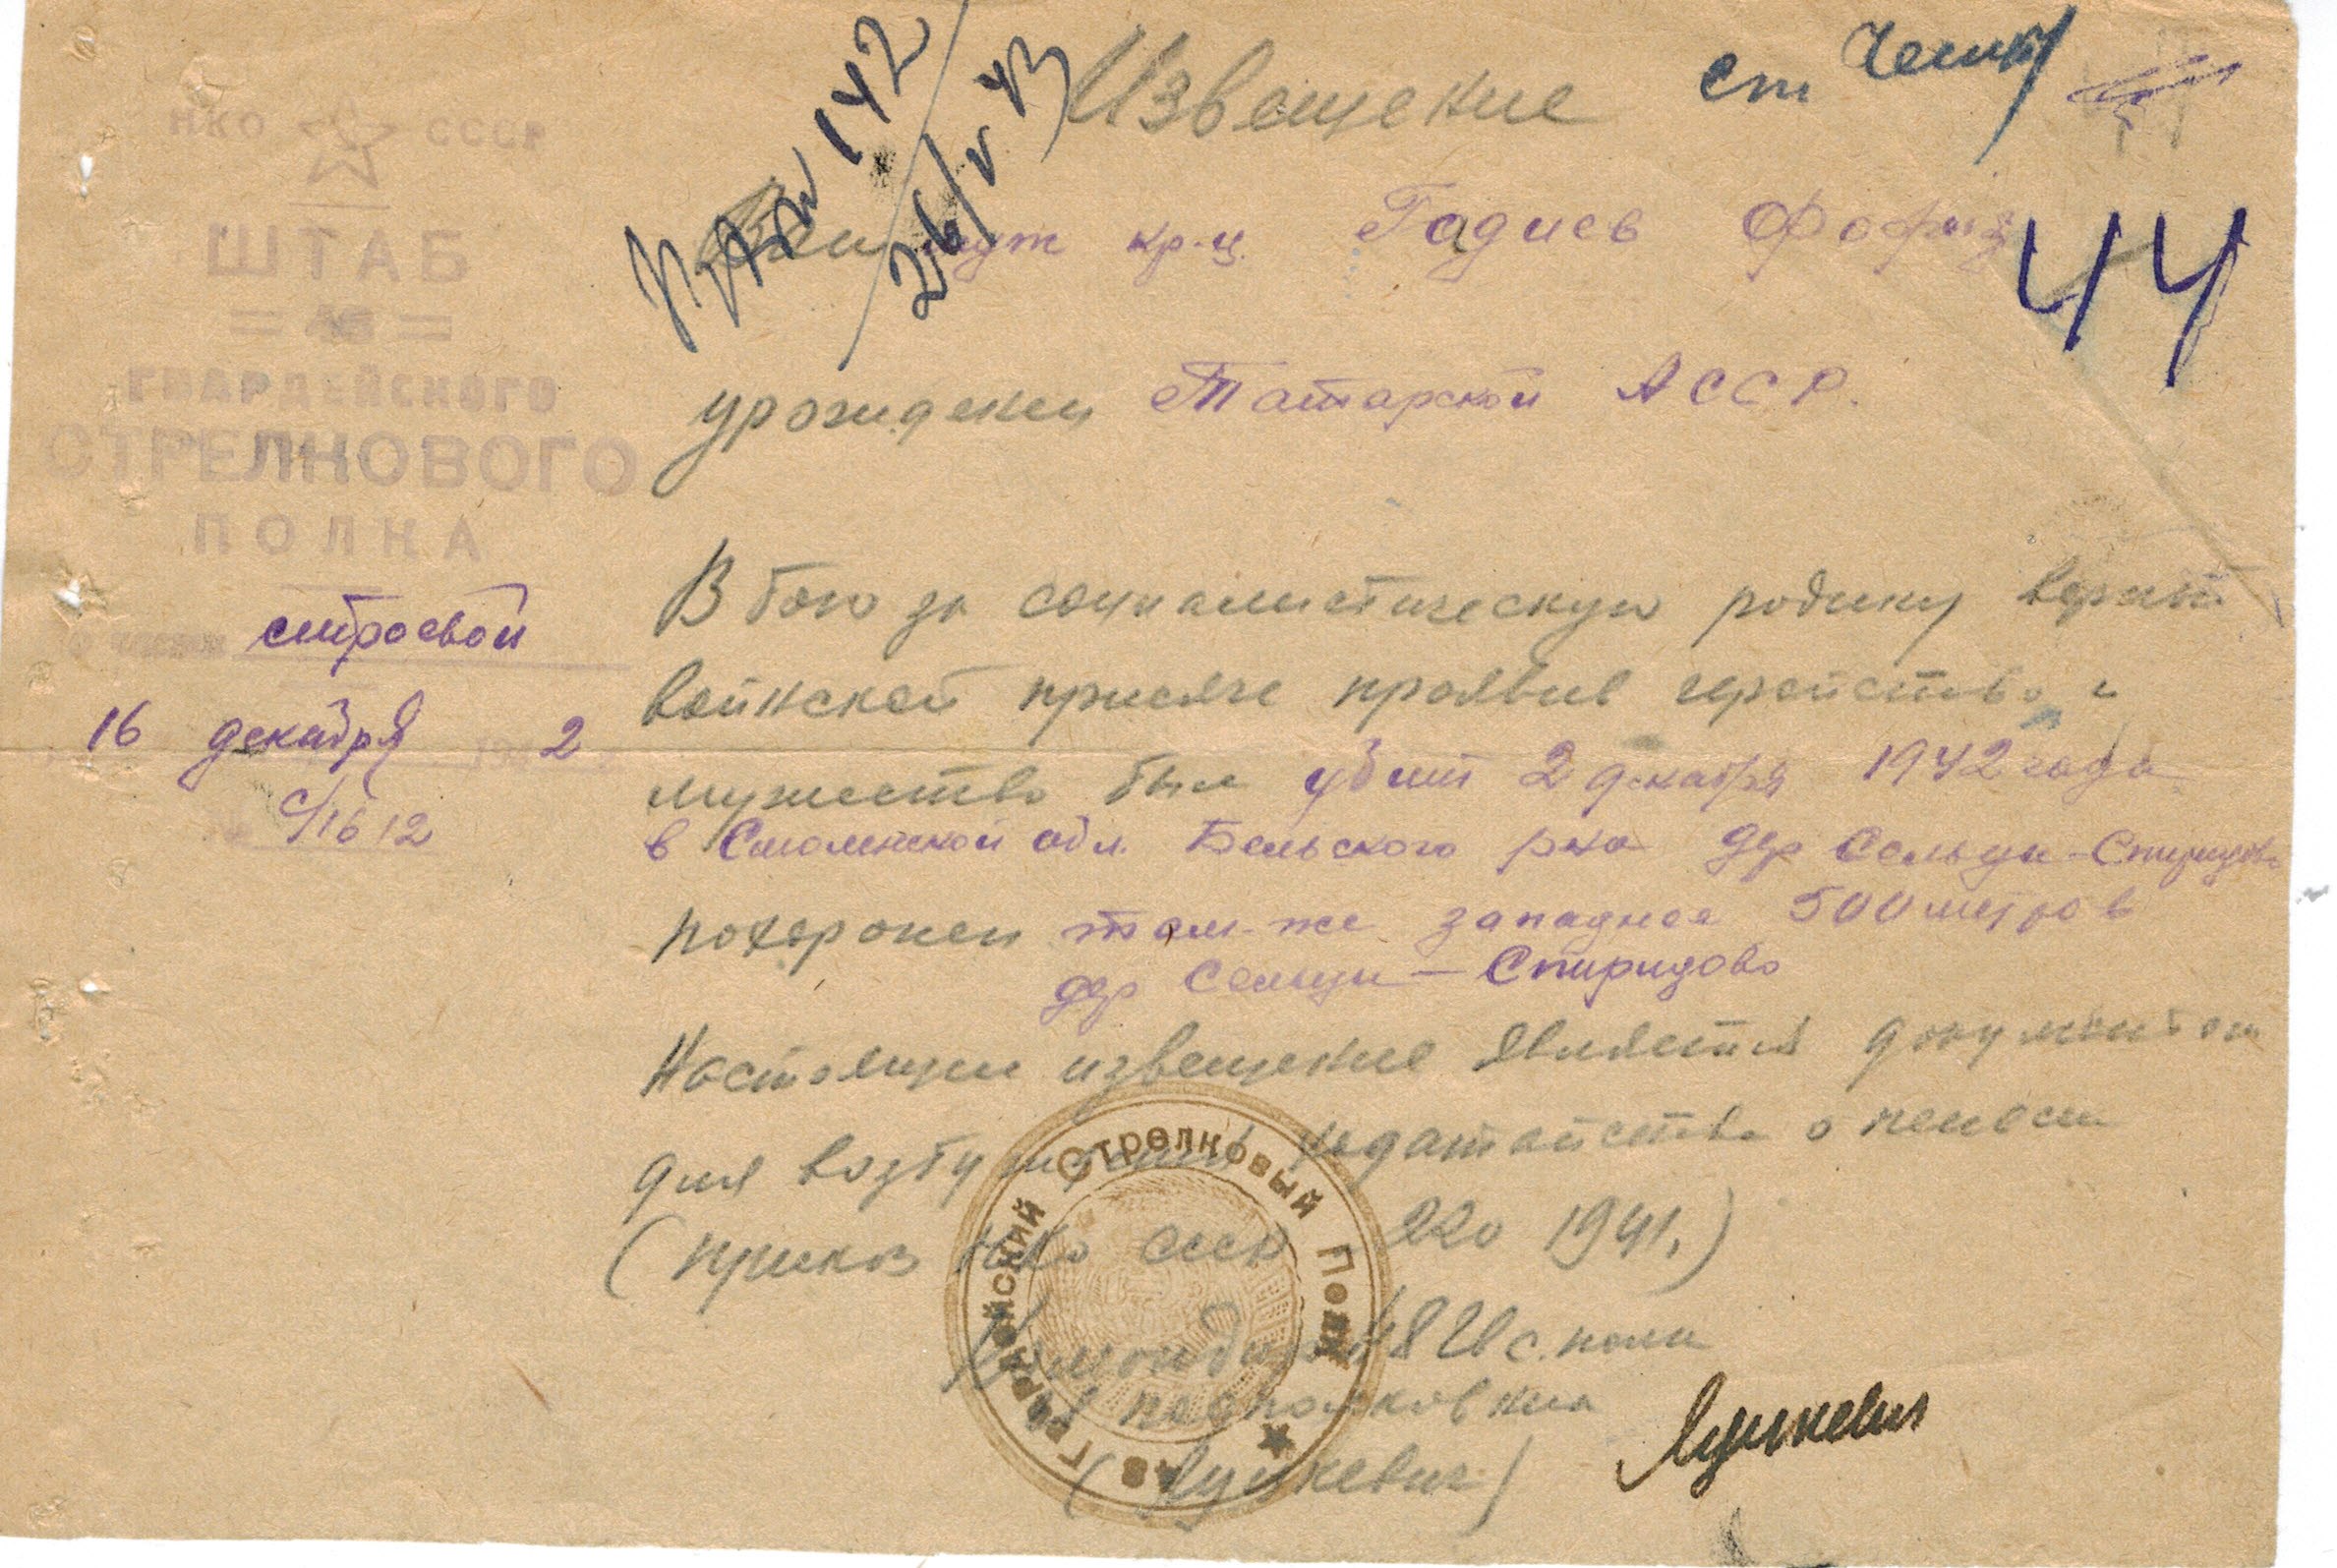 Извещение
ст
142
26/V 43
44
НКО СССР
ШТАБ
48
ГВАРДЕЙСКОГО
СТРЕЛКОВОГО
ПОЛКА
строевой
16 декабря 2
Ваш муж кр-ц. Гадиев
урожденец Татарской АССР.
В бою за социалистическую родину верный
воинской присяге проявив геройство и
мужество был убит 2 декабря 1942 года
в Смоленской обл. Бельского р-на дер Сельцы-Спиридово
похоронен там-же западнее 500 метров
дер Сельцы-Спиридово
Настоящее извещение является документом
для возбуждения ходатайства о пенсии
(приказ НКО СССР 220 1941.)
Командир 48 Гв с. полка
подполковник
(Лушкевич)
Лушкевич
48 Гвардейский Стрелковый Полк